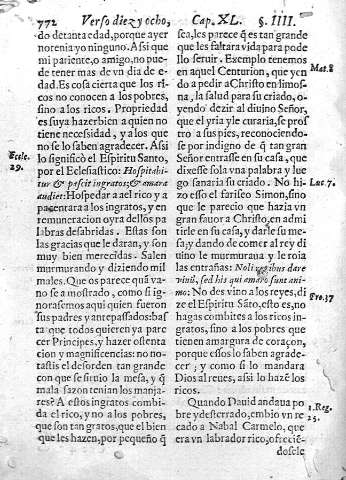 772 Verso diez y ocho, Cap. XL. §. IIII.
do de tanta edad, porque ayer
no tenia yo ninguno. Assi que
mi pariente, o amigo, no pue-
de tener mas de vn dia de e-
dad. Es cosa cierta que los ri-
cos no conocen a los pobres,
sino a los ricos. Propriedad
es suya hazer bien a quien no
tiene necessidad, y a los que
no se lo saben agradecer. Assi
lo significò el Espiritu Santo,
por el Eclesiastico: Hospitabi-
tur & pascit ingratos; & amara
audiet: Hospedar a el rico y a
pacentara a los ingratos, y en
remuneracion oyra dellos pa
labras desabridas. Estas son
las gracias que le daran, y son
muy bien merecidas. Salen
murmurando y diziendo mil
males. Que os parece quã va-
no se a mostrado, como si ig-
norassemos aqui quien fueron
sus padres y antepassados: bas
ta que todos quieren ya pare
cer Principes, y hazer ostenta
cion y magnificencias: no no-
tastis el desorden tan grande
con que se siruio la mesa, y q̃
mala sazon tenian los manja-
res? A estos ingratos combi-
da el rico, y no a los pobres,
que son tan gratos, que el bien
que les hazen, por pequeño q̃
Eccle.
29.
sea, les parece q̃ es tan grande
que les faltara vida para pode
llo seruir. Exemplo tenemos
en aquel Centurion, que yen
do a pedir a Christo en limos-
na, la salud para su criado, o-
yendo dezir al diuino Señor,
que el yria y le curaria, se pros
tro a sus pies, reconociendo-
se por indigno de q̃ tan gran
Señor entrasse en su casa, que
dixesse sola vna palabra y lue
go sanaria su criado. No hi-
zo esso el fariseo Simon, sino
que le parecio que hazia vn
gran fauor a Christo, en admi
tirle en su casa, y darle su me
sa; y dando de comer al rey di
uino le murmuraua y le roia
las entrañas: Noli regibus dare
vinũ, sed his qui amaro sunt ani-
mo: No des vino a los reyes, di
ze el Espiritu Sãto, esto es, no
hagas combites a los ricos in-
gratos, sino a los pobres que
tienen amargura de coraçon,
porque essos lo saben agrade-
cer; y como si lo mandara
Dios al reues, assi lo hazẽ los
ricos.
Quando Dauid andaua po
bre y desterrado, embio vn re
cado a Nabal Carmelo, que
era vn labrador rico, ofrecié-
dosele
Mat. 8
Luc. 7.
Pro. 37
1. Reg.
25.